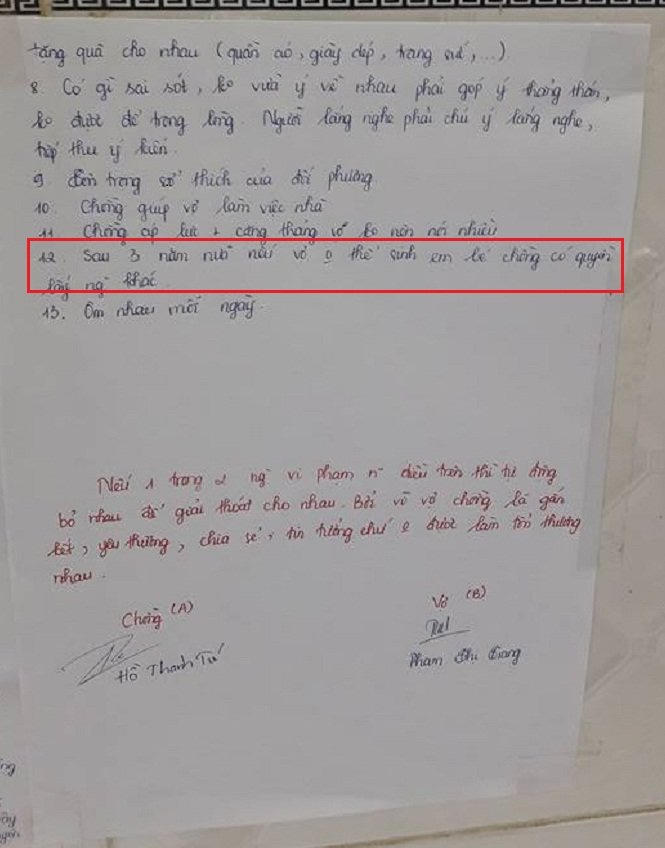 tặng quà cho nhau (quần áo, giày dép, trang sức,...)
8. Có gì sai sót, ko vừa ý về nhau phải góp ý thẳng thắn,
ko được để trong lòng. Người lắng nghe phải chú ý lắng nghe,
tiếp thu ý kiến.
9. Tôn trọng sở thích của đối phương
10. Chồng giúp vợ làm việc nhà
11. Chồng áp lực + căng thẳng vợ ko nên nói nhiều
12. Sau 3 năm nữa nếu vợ o thể sinh em bé chồng có quyền
lấy ng khác.
13. Ôm nhau mỗi ngày.
Nếu 1 trong 2 ng vi phạm n~ điều trên thì tự động
bỏ nhau để giải thoát cho nhau. Bởi vì vợ chồng là gắn
kết, yêu thương, chia sẻ, tin tưởng chứ o được làm tổn thương
nhau.
Chồng (A)
Vợ (B)
Hồ Thanh Tú
Phạm Thị Giang